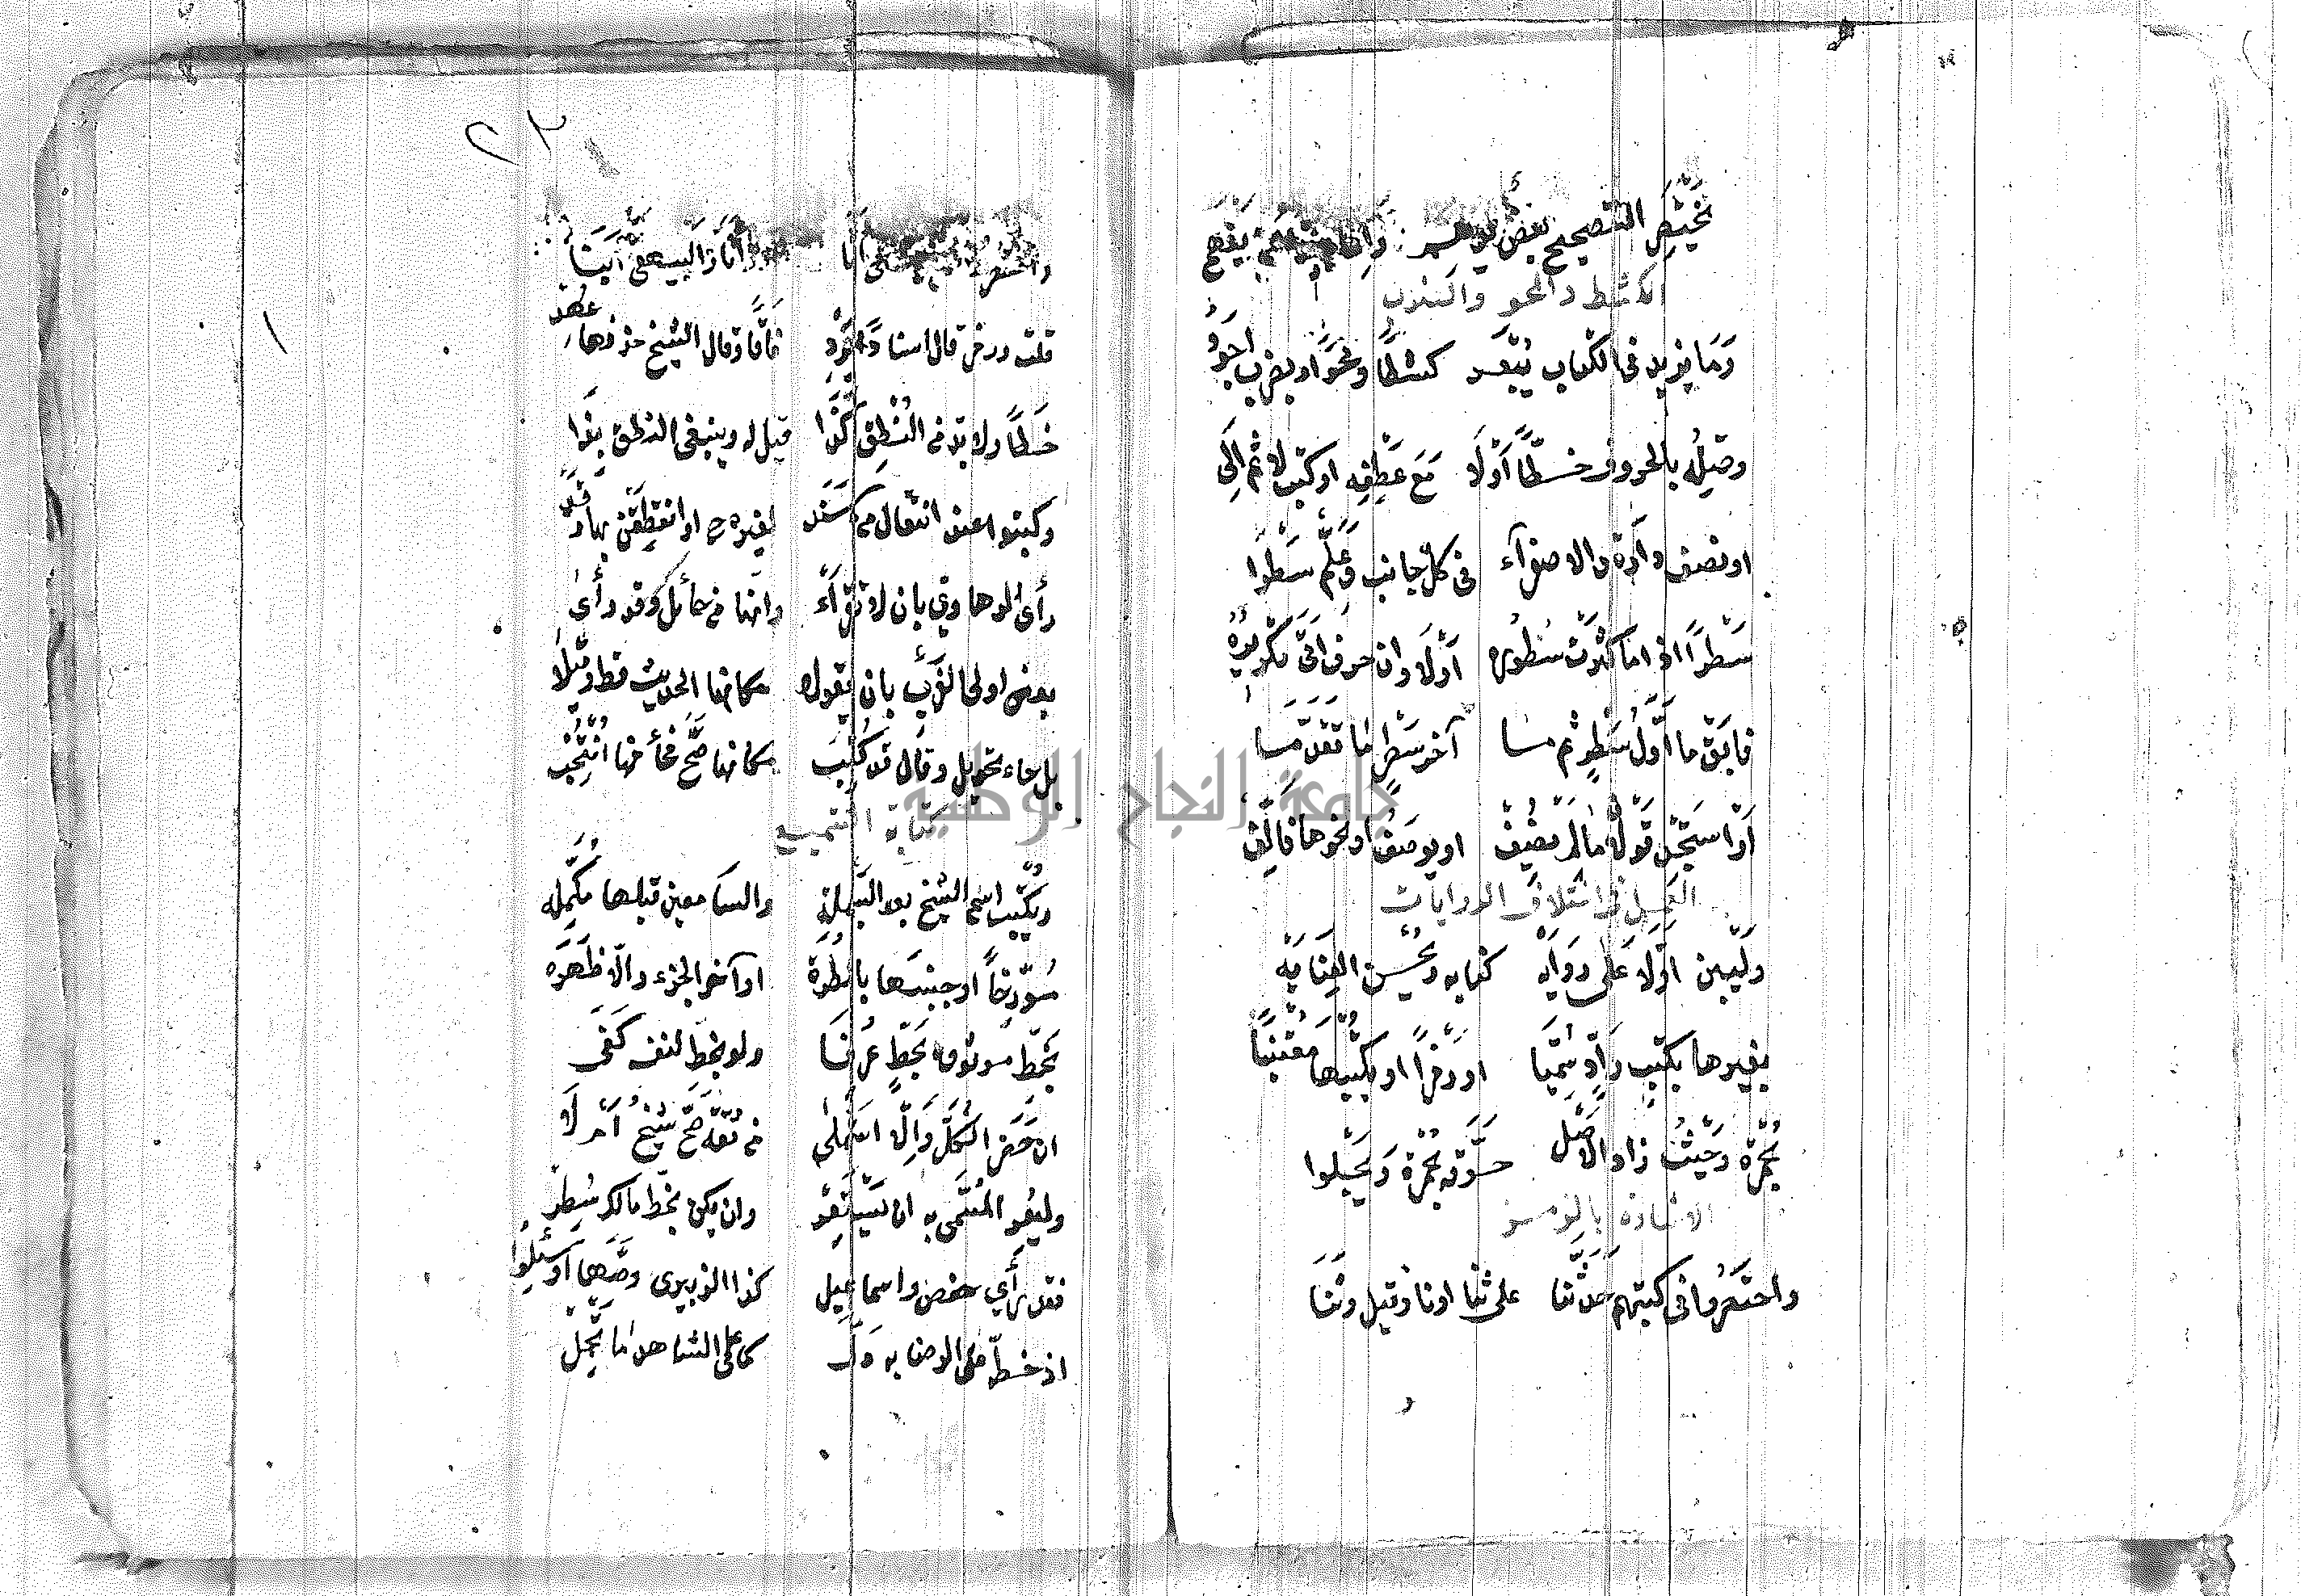 يختصر التصحيح بعض يوهم وإنما يميزه من يفهم
الكشط والمحو والضرب
وما يزيد في الكتاب يبعد كشطا ومحوا وبضرب اجود
وصله بالحروف خطا أولا مع عطفه او كتب لا ثم الى
او نصف دارة والا صفرا في كل جانب وعلم سطرا
سطرا اذا ما كثرت سطوره أولا وان حرف اتى تكريره
فابق ما أول سطر ثم ما آخر سطر ما تقدما
أو استجد قولان ما لم يضف او يوصف او نحوها فالف
العمل في اختلاف الروايات
وليبن اولا على رواية كتابه ويحسن العناية
بغيرها بكتب راو سميا او رمزا او يكتبها معتنيا
بحمرة وحيث زاد الاصل حوقه بحمرة ويجلوا
الاشارة بالرمز
واختصروا في كتبهم حدثنا على ثنا او نا وقيل دثنا
واختصروا اخبرنا على انا او ارنا والبيهقي ابنا
قلت ورمز قال اسنادا يرد قافا وقال الشيخ حذفها عهد
خطا ولا بد من النطق كذا قيل له وينبغي النطق بذا
وكتبوا عند انتقال من سند لغيره ح او انطقن بها وقد
رأى الرهاوي بان لا تقرا وانها من حائل وقد رأى
بعض اولي الغرب بان يقولا مكانها الحديث قط وقيلا
بل حاء تحويل وقال قد كتب مكانها صح فحا منها انتخب
كتابة التسميع
ويكتب اسم الشيخ بعد البسملة والسامعين قبلها مكمله
مؤرخا او جنبها بالطرة او آخر الجزء والا ظهره
بخط موثوق بخط عرفا ولو بخطه لنفسه كفى
ان حضر الكل والا استملى من ثقة صح شيخ ام لا
وليعر المسمى به ان يستعر وان يكن بخط مالك سطر
فقد رأي حفص واسماعيل كذا الزبيري فرضها اذ سئلوا
اذ خطه على الرضا به دل كما على الشاهد ما تحمل
جامعة النجاح الوطنية